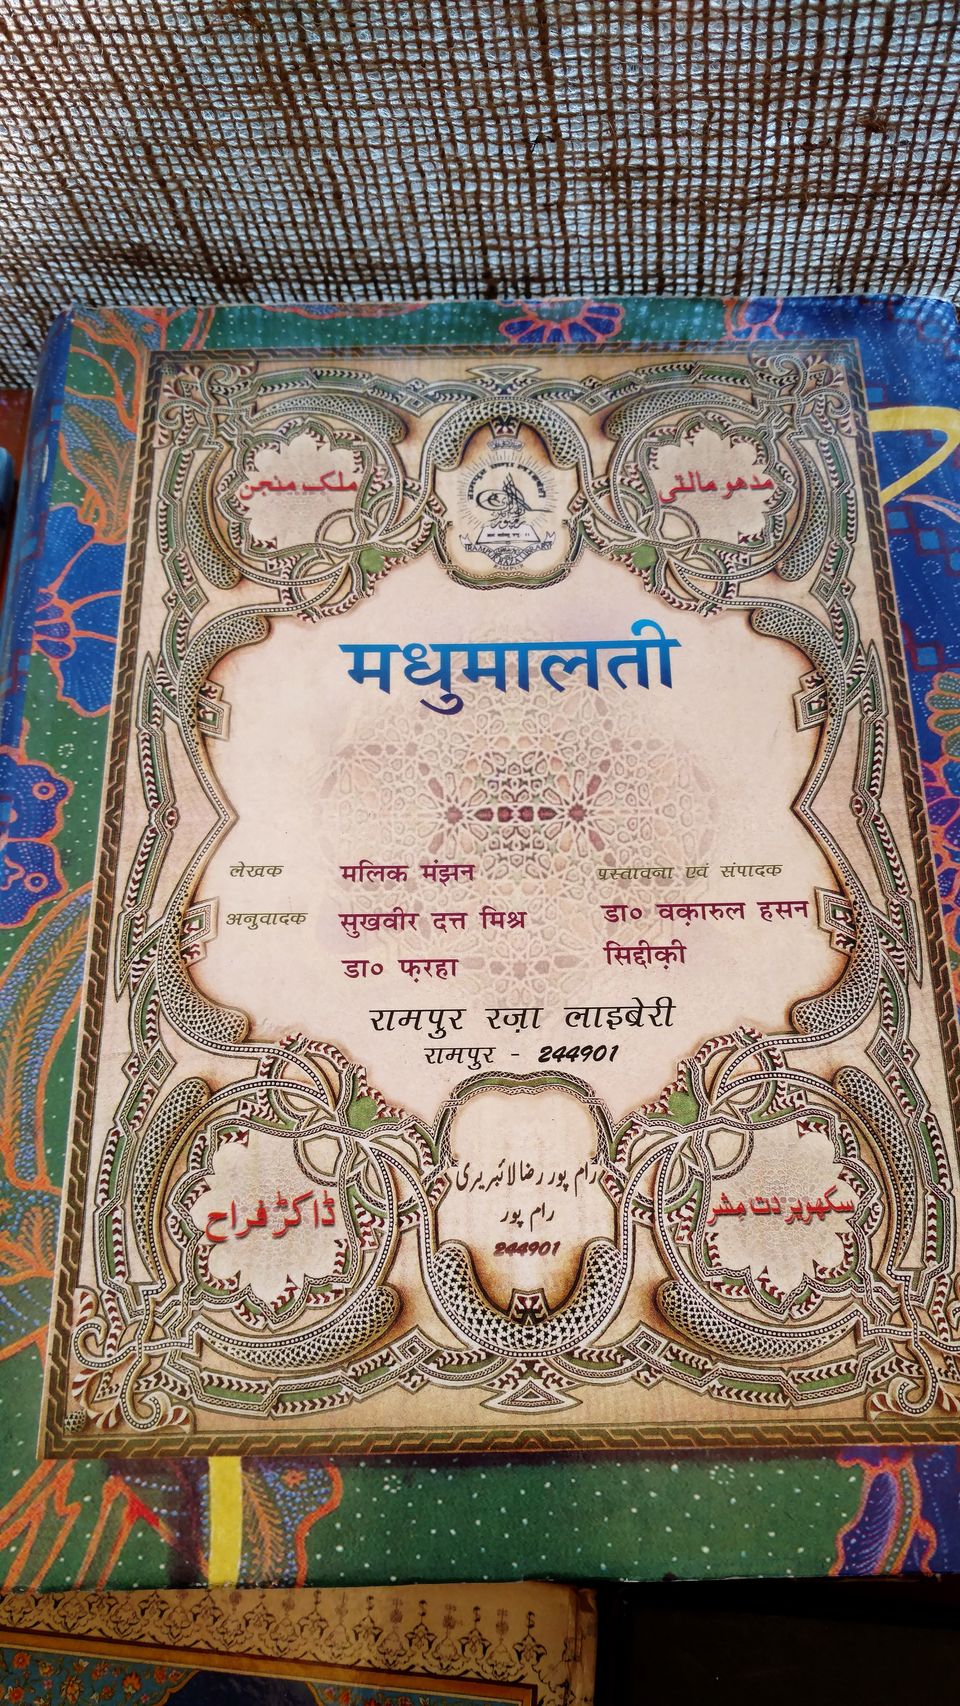 ملک منجن
مدھو مالتی
RAMPUR RAZA LIBRARY
RAMPUR
मधुमालती
लेखक मलिक मंझन
अनुवादक सुखवीर दत्त मिश्र
डा० फ़रहा
प्रस्तावना एवं संपादक
डा० वक़ारुल हसन
सिद्दीक़ी
रामपुर रज़ा लाइब्रेरी
रामपुर - 244901
ڈاکڑ فراح
رام پور رضا لائبریری
رام پور
244901
سکھویر دت مشر